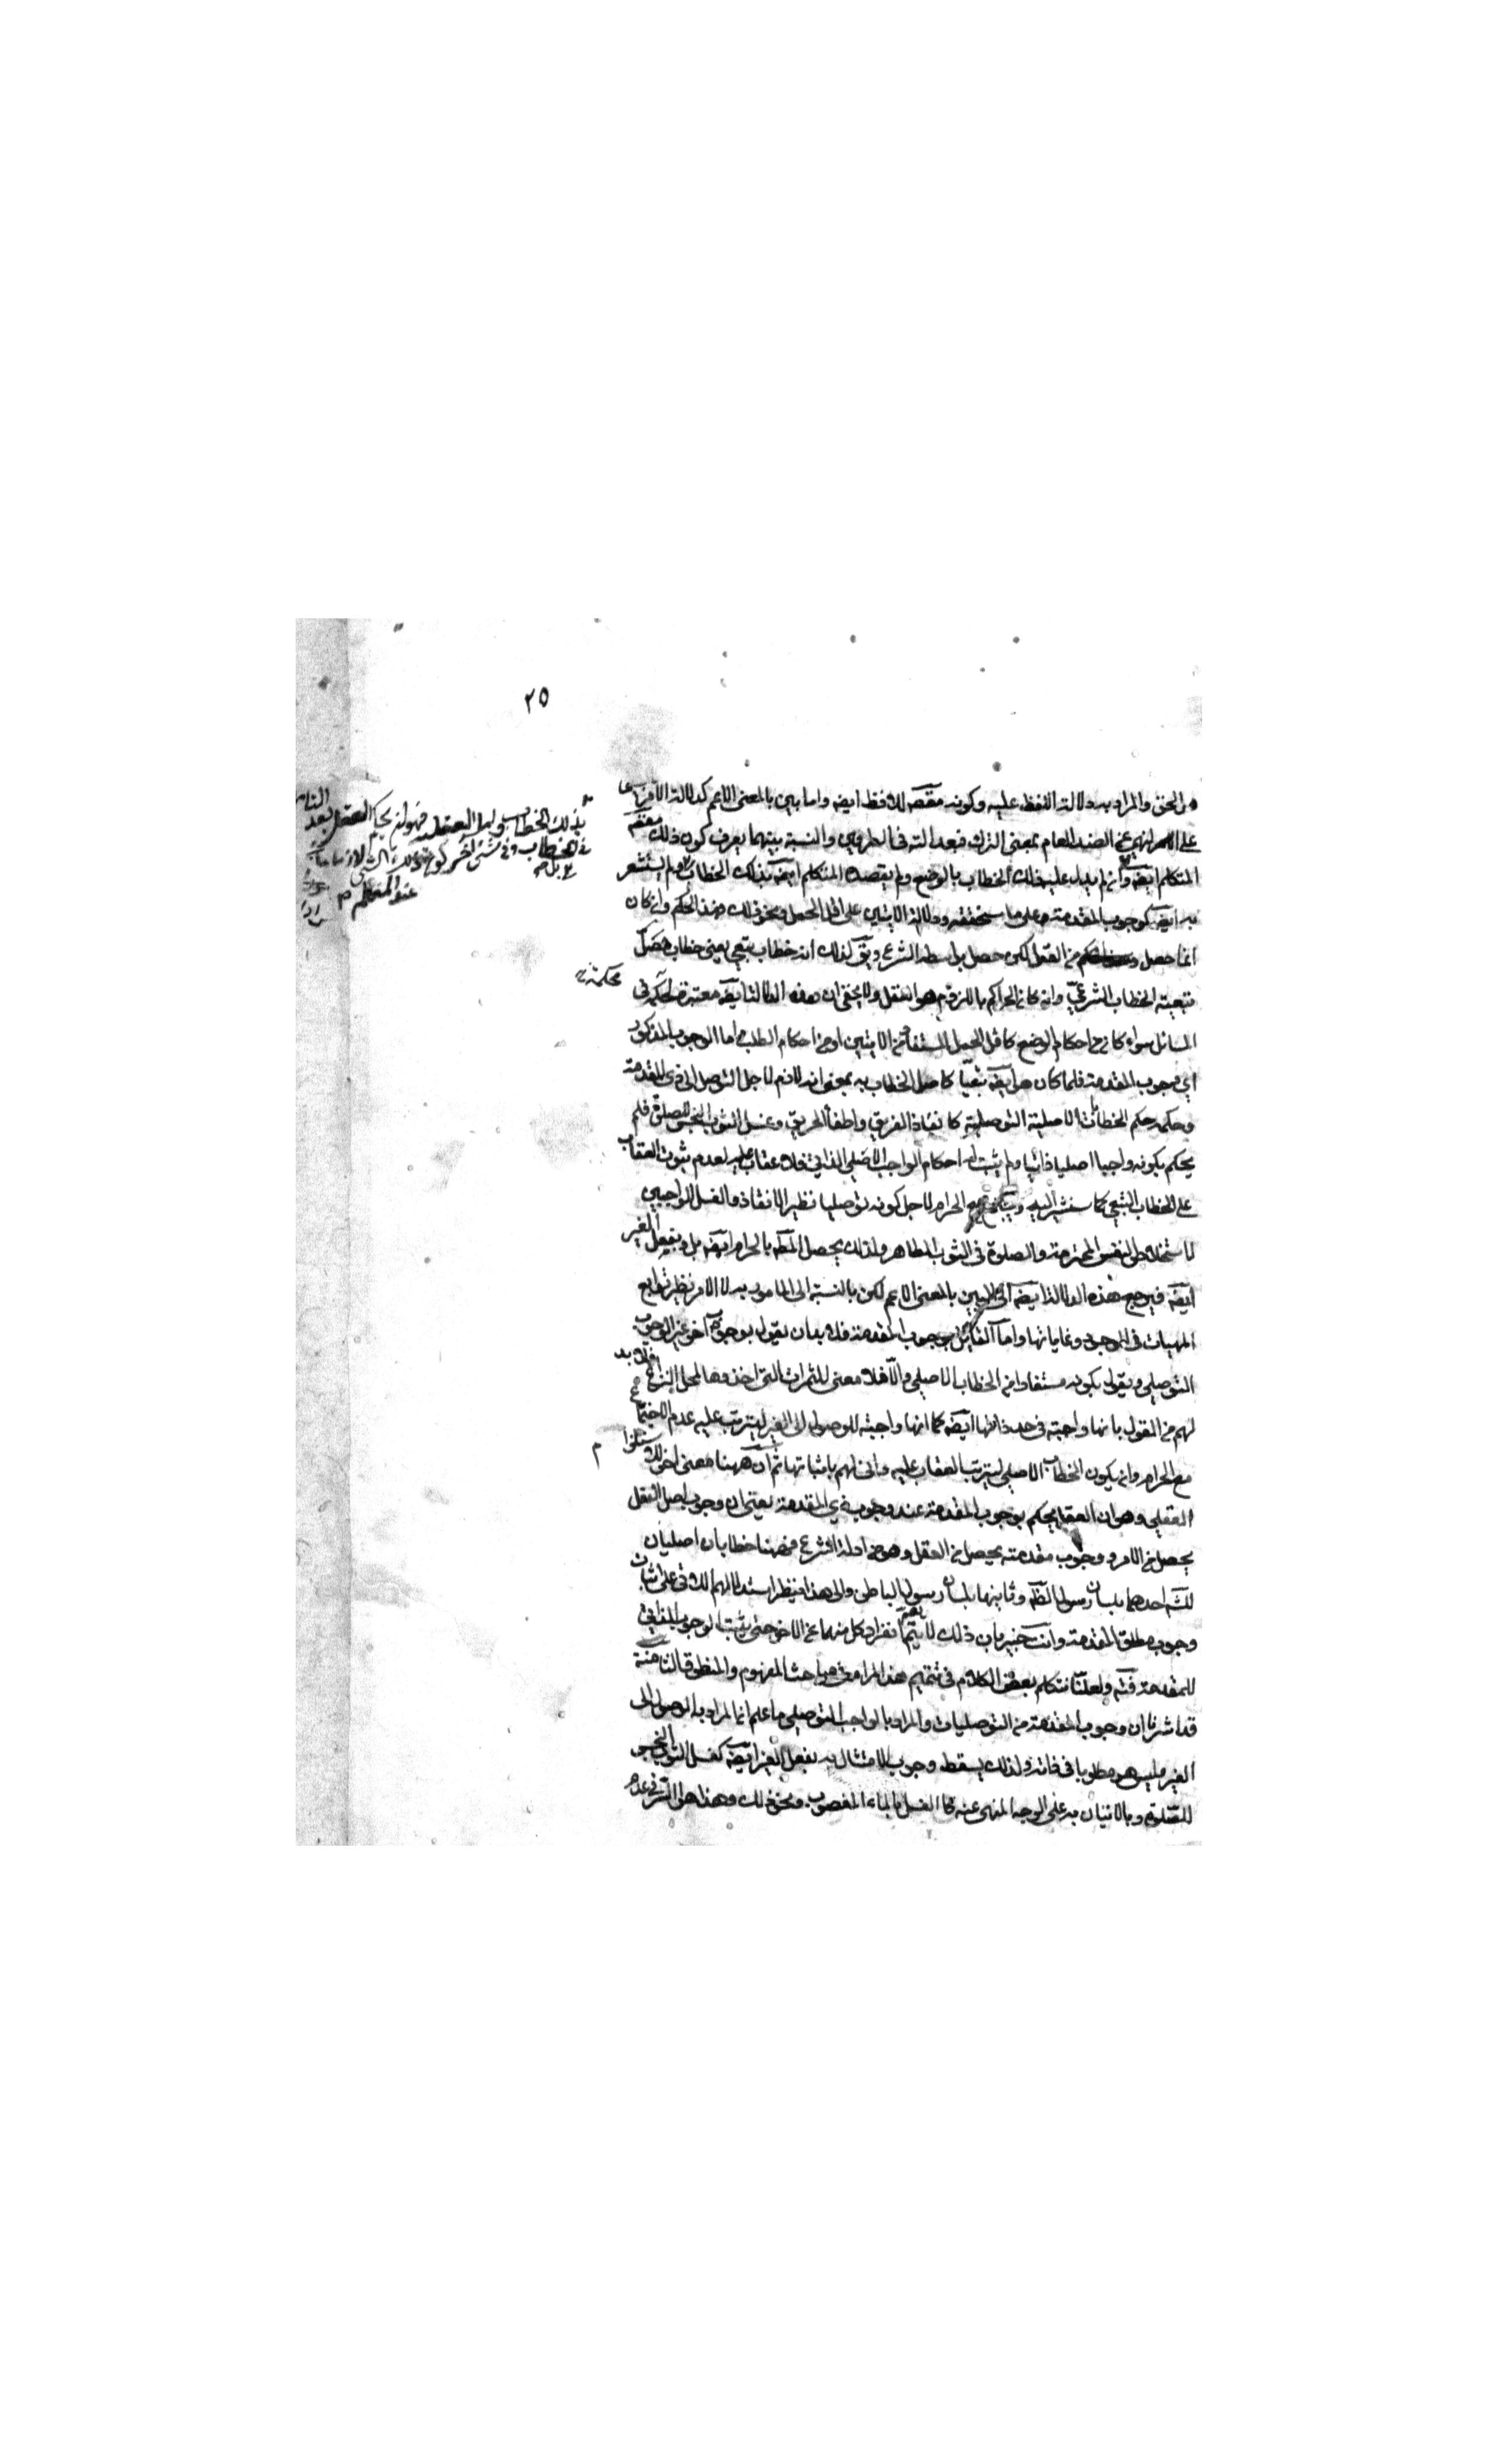 ٢٥
من الحق والمراد به دلالة اللفظ عليه وكونه مقصودا للافظ ايضه واما بين بالمعنى الاعم كدلالة الامر بالشئ
على النهى عن الضد العام بمعنى الترك فبعد التر فى الطرفين والنسبة بينهما يعرف كون ذلك مقصود
المتكلم ايضه وان لم يدل عليه ذلك الخطاب بالوضع ولم يقصده المتكلم ايضه بذلك الخطاب ولم يستشعر
به ايضه كوجوب المقدمة على ما سنحققه ودلالة الايتين على اقل الحمل ونحو ذلك وهذا الحكم وان كان
انما حصل من العقل لكن حصل بواسطة الشرع ويق لذلك انه خطاب تبعى يعنى خطاب حصل
بتبعية الخطاب الشرعى وان كان الحاكم باللزوم هو العقل ولا يخفى ان هذه الدلالة ايضه معتبرة محكمة فى
المسائل سواء كان من احكام الوضع كاقل الحمل المستفاد من الايتين او من احكام الطلب واما الوجوب المذكور
اى وجوب المقدمة فلما كان هو ايضه تبعيا كاصل الخطاب به بمعنى انه لازم لاجل التوصل الى ذى المقدمة
وحكمه حكم الخطابات الاصلية التوصلية كانقاذ الغريق واطفاء الحريق وغسل الثوب النجس للصلوة فلم
يحكم بكونه واجبا اصليا ذاتيا ولم يثبت له احكام الواجب الاصلى الذاتى فلا عقاب عليه لعدم ثبوت العقاب
على الخطاب التبعى كما سنشير اليه ويجتمع مع الحرام لاجل كونه توصليا نظير الانقاذ والغسل الواجبين
لاستخلاص النفس المحترمة والصلوة فى الثوب الطاهر ولذلك يحصل المط بالحرام ايضه بل وبفعل الغير
ايضه فيرجع هذه الدلالة ايضه الى البين بالمعنى الاعم لكن بالنسبة الى المامور به لا الامر نظير توابع
المهيات فى الوجود وغاياتها واما القائل بوجوب المقدمة فلا بد ان يقول بوجوب آخر غير الوجوب
التوصلى ويقول بكونه مستفادا من الخطاب الاصلى والا فلا معنى للثمرات التى اخذوها لمحل النزاع فلا بد
لهم من القول بانها واجبة فى حد ذاتها ايضه كما انها واجبة للوصول الى الغير ليترتب عليه عدم الاجتماع
مع الحرام وان يكون الخطاب الاصلى ليترتب العقاب عليه وانى لهم باثباتها ثم ان ههنا معنى اخر للاستلزام
العقلى وهو ان العقل يحكم بوجوب المقدمة عند وجوب ذى المقدمة يعنى ان وجوب اصل الفعل
يحصل من الامر ووجوب مقدمته يحصل من العقل وهو من ادلة الشرع فههنا خطابان اصليان
للشه احدهما بلسان رسول الظه وثانيهما بلسان رسول الباطن والى هذا ينظر استدلالهم الاتى على اثبات
وجوب مطلق المقدمة وانت خبير بان ذلك لا يتم بعد انفراد كل منهما عن الاخر حتى يثبت الوجوب الذاتى
للمقدمة فته ولعلنا نتكلم بعض الكلام فى تتميم هذا المرام فى مباحث المفهوم والمنطوق الثامنة
قد اشرنا ان وجوب المقدمة من التوصليات والمراد بالواجب التوصلى ما علم انما المراد به الوصول الى
الغير وليس هو مطلوبا فى ذاته ولذلك يسقط وجوب الامتثال به بفعل الغير ايضه كغسل الثوب النجس
للصلوة وبالاتيان به على الوجه المنهى عنه كالغسل بالماء المغصوب ونحو ذلك وهذا هو السر فى عدم